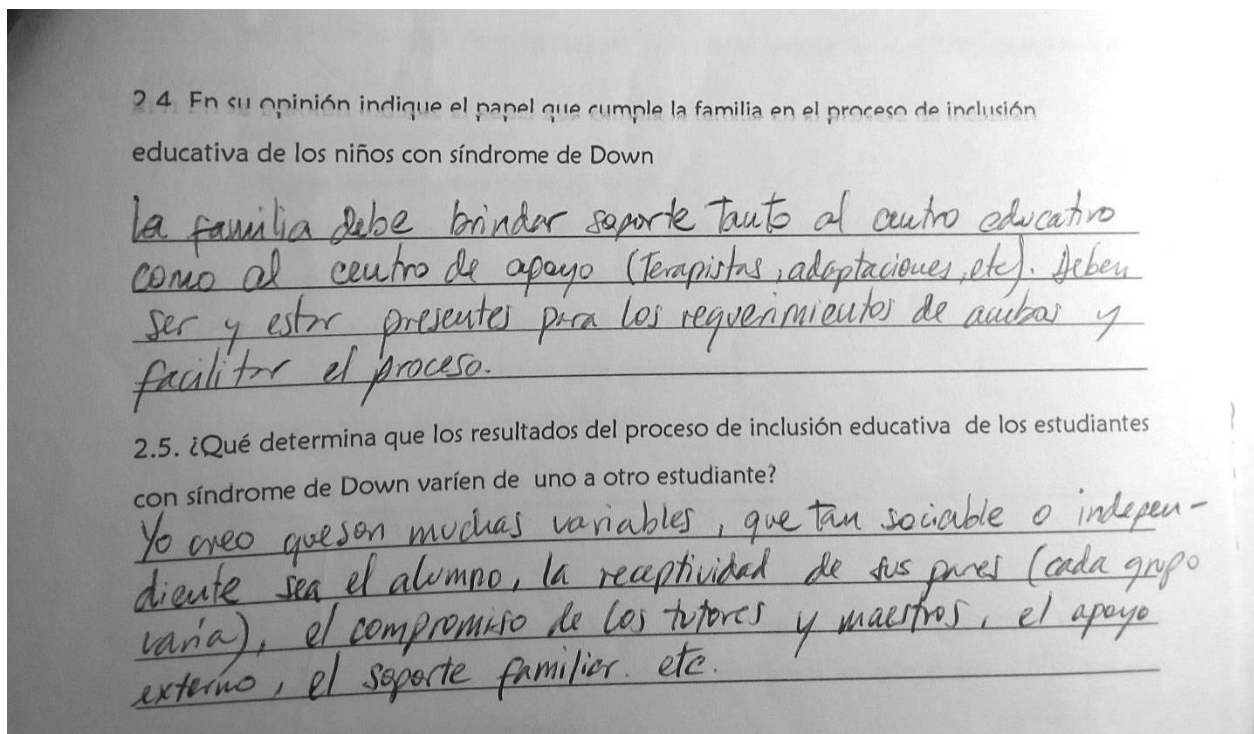 2.4. En su opinión indique el papel que cumple la familia en el proceso de inclusión
educativa de los niños con síndrome de Down
la familia debe brindar soporte tanto al centro educativo
como al centro de apoyo (Terapistas, adaptaciones, etc). Deben
ser y estar presentes para los requerimientos de ambas y
facilitar el proceso.
2.5. ¿Qué determina que los resultados del proceso de inclusión educativa de los estudiantes
con síndrome de Down varíen de uno a otro estudiante?
Yo creo que son muchas variables, que tan sociable o indepen-
diente sea el alumno, la receptividad de sus pares (cada grupo
varía), el compromiso de los tutores y maestros, el apoyo
externo, el soporte familiar. etc.